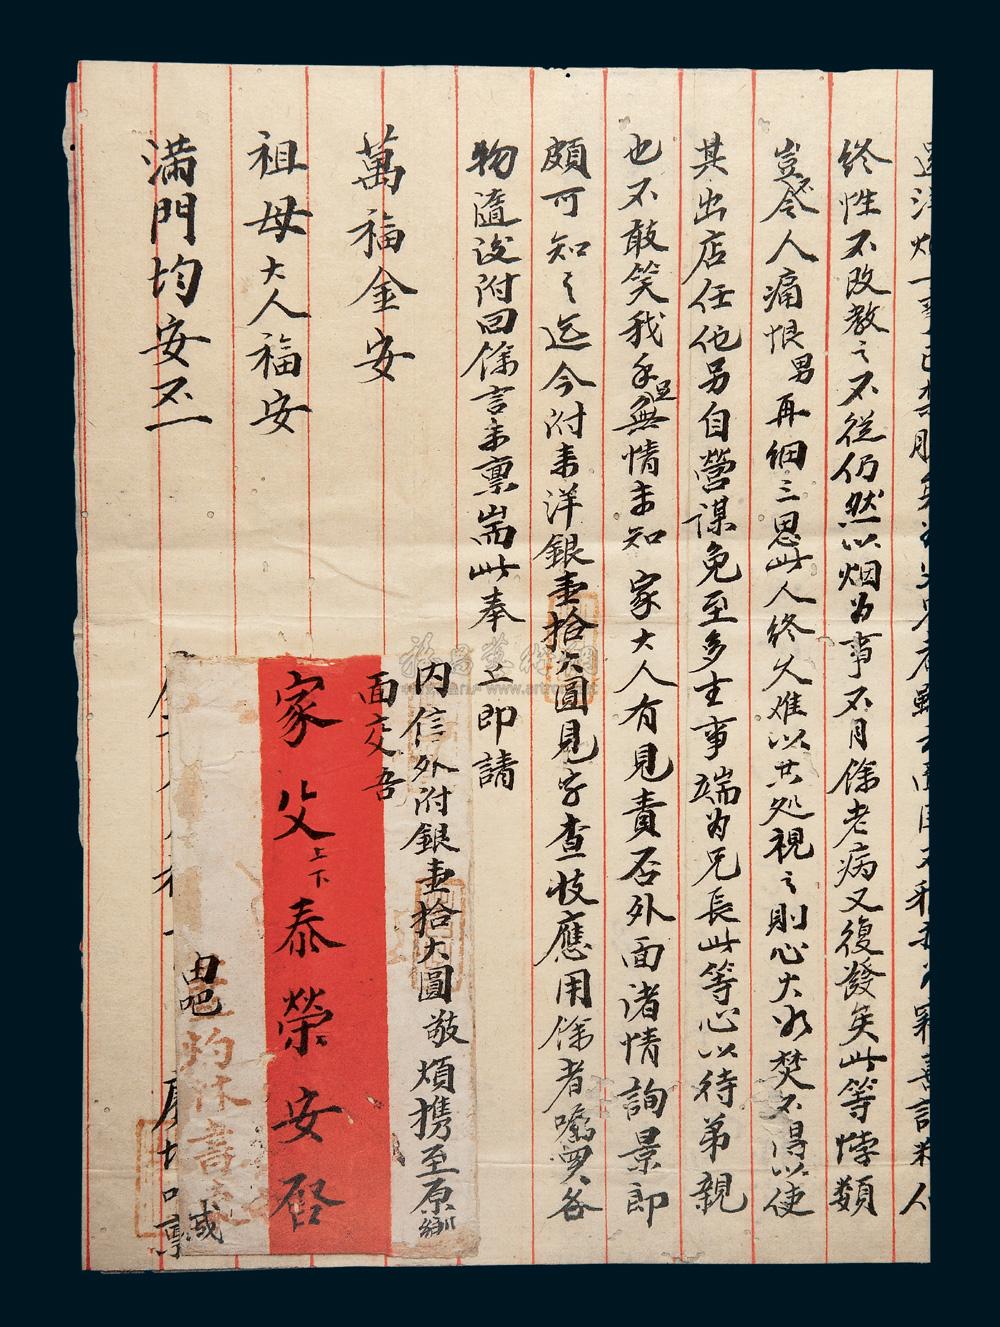 終性不改教之不從仍然以烟為事不月餘老病又復發矣此等悖類
豈不令人痛恨男再細三思此人終久难以共処視之則心火如焚不得以使
其出店任他另自營謀免至多生事端为兄長此等心以待弟親
也不敢笑我手足無情未知家大人有見責否外面诸情詢景即
頗可知之迄今附来洋銀壹拾大圓見字查收應用餘者嘱買各
物隨後附回餘言未禀耑此奉上即請
萬福金安
祖母大人福安
满門均安不一
内信外附銀壹拾大圓敬煩携至原鄉
面交吾
家父上下泰榮安啓
由吧 緘